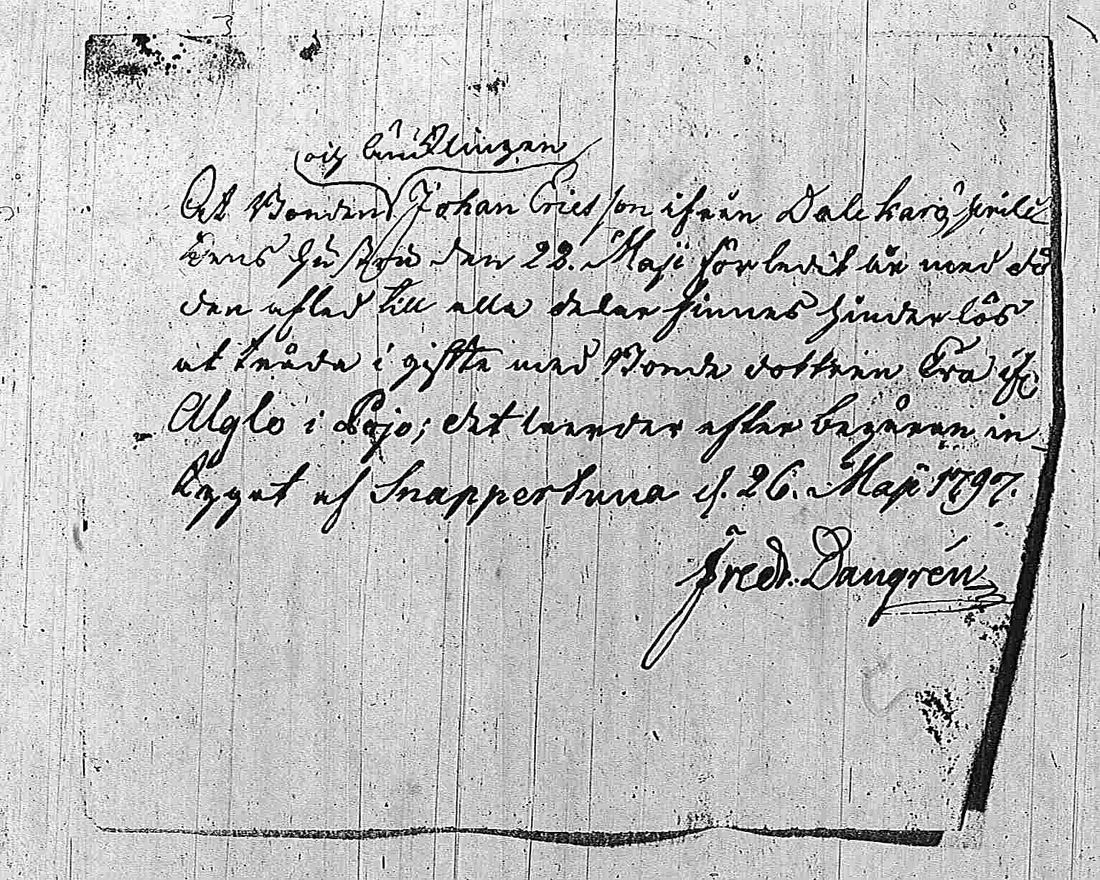 och änklingen
At Bonden Johan Ericsson ifrån Dalckarby hvilc
kens hustru den 28. Maji förledit år med dö
den afled till alla delar finnes hinderlös
at träda i gifte med Bonde dottren Eva if.
Alglo i Pojo; det warder efter begäran in
tygat af Snappertuna d. 26. Maji 1797.
Fredr. Dangrén